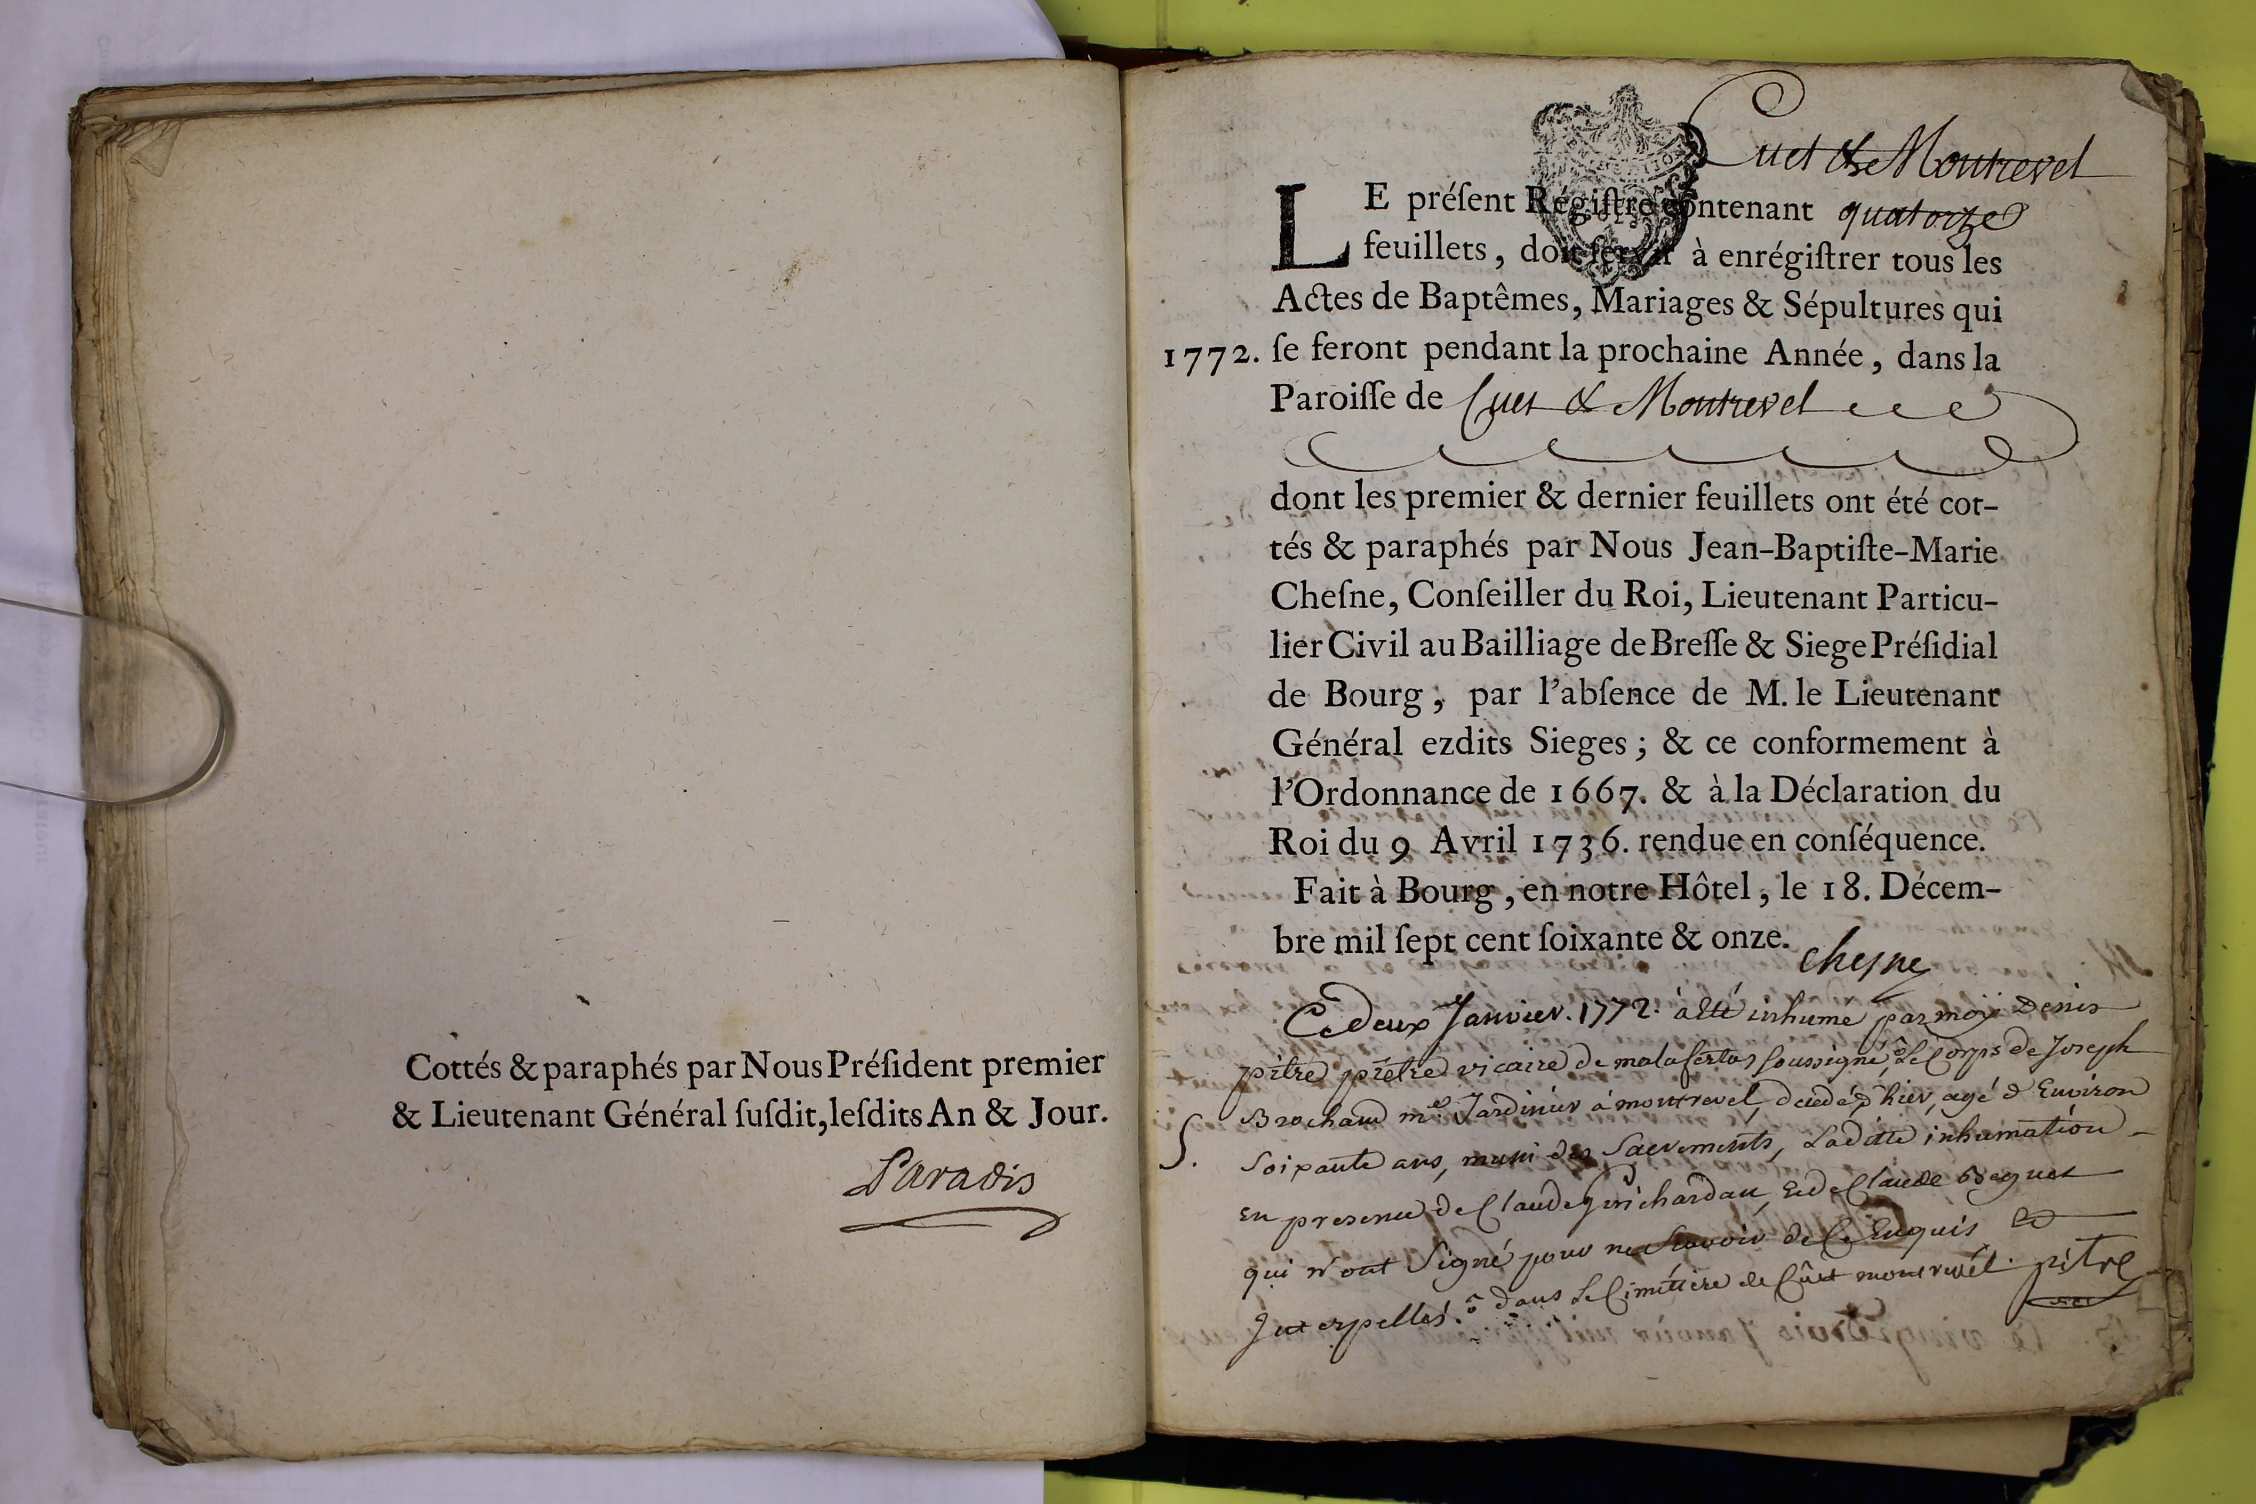 Cottés & paraphés par Nous Préſident premier
& Lieutenant Général ſuſdit, leſdits An & Jour.
Paradis
Cuet & Montrevel
LE préſent Régiſtre contenant quatorze
feuillets, doit ſervir à enrégiſtrer tous les
Actes de Baptêmes, Mariages & Sépultures qui
1772. ſe feront pendant la prochaine Année, dans la
Paroiſſe de Cuet & Montrevel
dont les premier & dernier feuillets ont été cot-
tés & paraphés par Nous Jean-Baptiſte-Marie
Cheſne, Conſeiller du Roi, Lieutenant Particu-
lier Civil au Bailliage de Breſſe & Siege Préſidial
de Bourg, par l'abſence de M. le Lieutenant
Général ezdits Sieges; & ce conformement à
l'Ordonnance de 1667. & à la Déclaration du
Roi du 9 Avril 1736. rendue en conſéquence.
Fait à Bourg, en notre Hôtel, le 18. Décem-
bre mil ſept cent ſoixante & onze.
chesne
Ce deux Janvier. 1772. à été inhumé par moy Denis
pitre prêtre vicaire de malafertas soussigné, le Corps de Joseph
Brochand me. Jardinier à montrevel, décédé hier, agé d'Environ
S. Soixante ans, muni des Sacrements, Ladite inhumation
En presence de Claude Guichardan, Et de Claude Beguet
qui n'ont Signé pour ne Scavoir de Ce Enquis Et
Interpellés. dans Le Cimétiere de Cüet montrevel. pitre